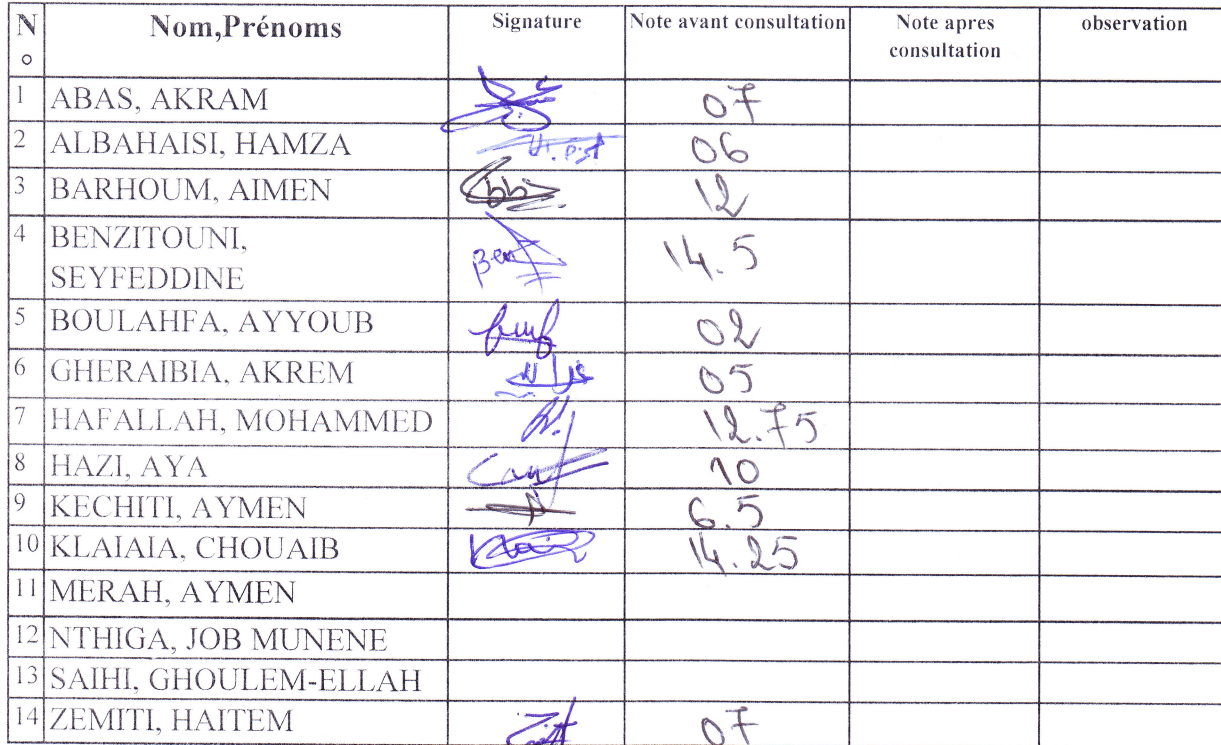 N° Nom,Prénoms Signature Note avant consultation Note apres consultation observation
1 ABAS, AKRAM 07
2 ALBAHAISI, HAMZA 06
3 BARHOUM, AIMEN 12
4 BENZITOUNI,
SEYFEDDINE 14.5
5 BOULAHFA, AYYOUB 02
6 GHERAIBIA, AKREM 05
7 HAFALLAH, MOHAMMED 12.75
8 HAZI, AYA 10
9 KECHITI, AYMEN 6.5
10 KLAIAIA, CHOUAIB 14.25
11 MERAH, AYMEN
12 NTHIGA, JOB MUNENE
13 SAIHI, GHOULEM-ELLAH
14 ZEMITI, HAITEM 07